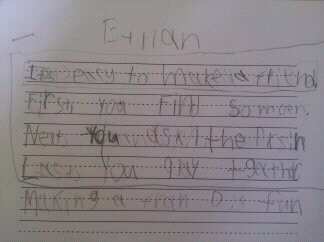 Ethan
Its easy to make a frend.
First you Find Somoen.
Next You ask the Prsin
Last You Play tgathr
Making a fran D is fun